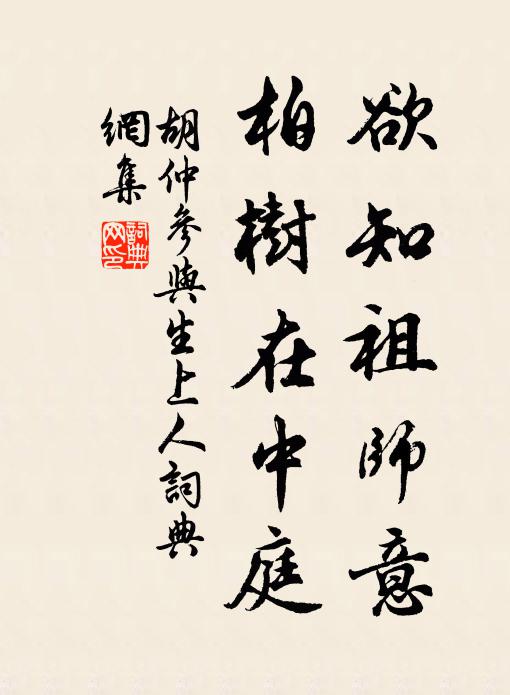 欲知祖師意
柏樹在中庭
胡仲參與生上人詞典
網集
詞典網印